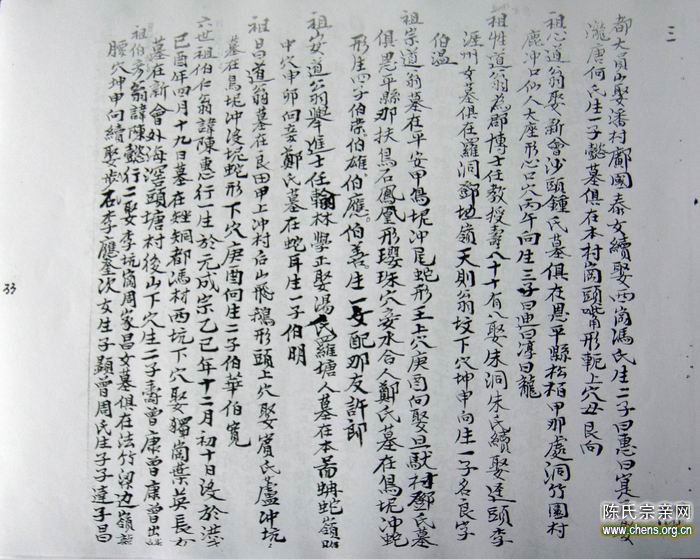 三
都大員山娶潘村鄺國泰女續娶西崗馮氏生二子曰惠曰寞 娶
瀧唐何氏生一子懿墓俱在本村崗頭嘴形軛上穴丑艮向
祖心道翁娶新會沙頭鍾氏墓俱在恩平縣松栢甲那處洞竹園村
鹿冲口仙人大座形心口穴丙午向生三子曰 曰淳曰龍
祖性道翁為郡博士任教授壽八十有八娶床洞朱氏續娶逕頭李
涯州女墓俱在羅洞鄧坳嶺天則翁坟下穴坤申向生一子名良字
伯温
祖宗道翁墓在平安甲鳥坭冲尾蛇形王上穴庚酉向娶旦馱村鄧氏墓
俱恩平縣那扶鳥石鳳凰形瓔珠穴妾水合人鄭氏墓在鳥坭冲蛇
形生四子伯崇伯雄伯應伯善生一女配那友許郎
祖安道翁舉進士任翰林學正娶湯氏羅塘人墓在本 蚺蛇嶺
中穴甲卯向妾鄭氏墓在蛇耳生一子伯明
祖昌道翁墓在良田甲上冲村后山飛鵝形頭上穴娶賓氏 盧冲坑
墓在鳥坭冲沒坑蛇形下穴庚酉向生二子伯華伯寬
六世祖伯仁翁諱陳惠行一生於元成宗乙巳年十二月初十日沒於洪
己酉年四月十九日墓在矬峒都馮村西坑下穴娶獨崗葉英長女
墓在新會外海滘頭塘村後山下穴生二子壽曾康曾康曾出
祖伯 翁諱陳懿行二娶李坑崗周家昌女墓俱在法竹梁边嶺
腰穴坤申向續娶步石李應 次女生子顯曾周氏生子子達子昌
33
陈氏宗亲网
www.chens.org.cn